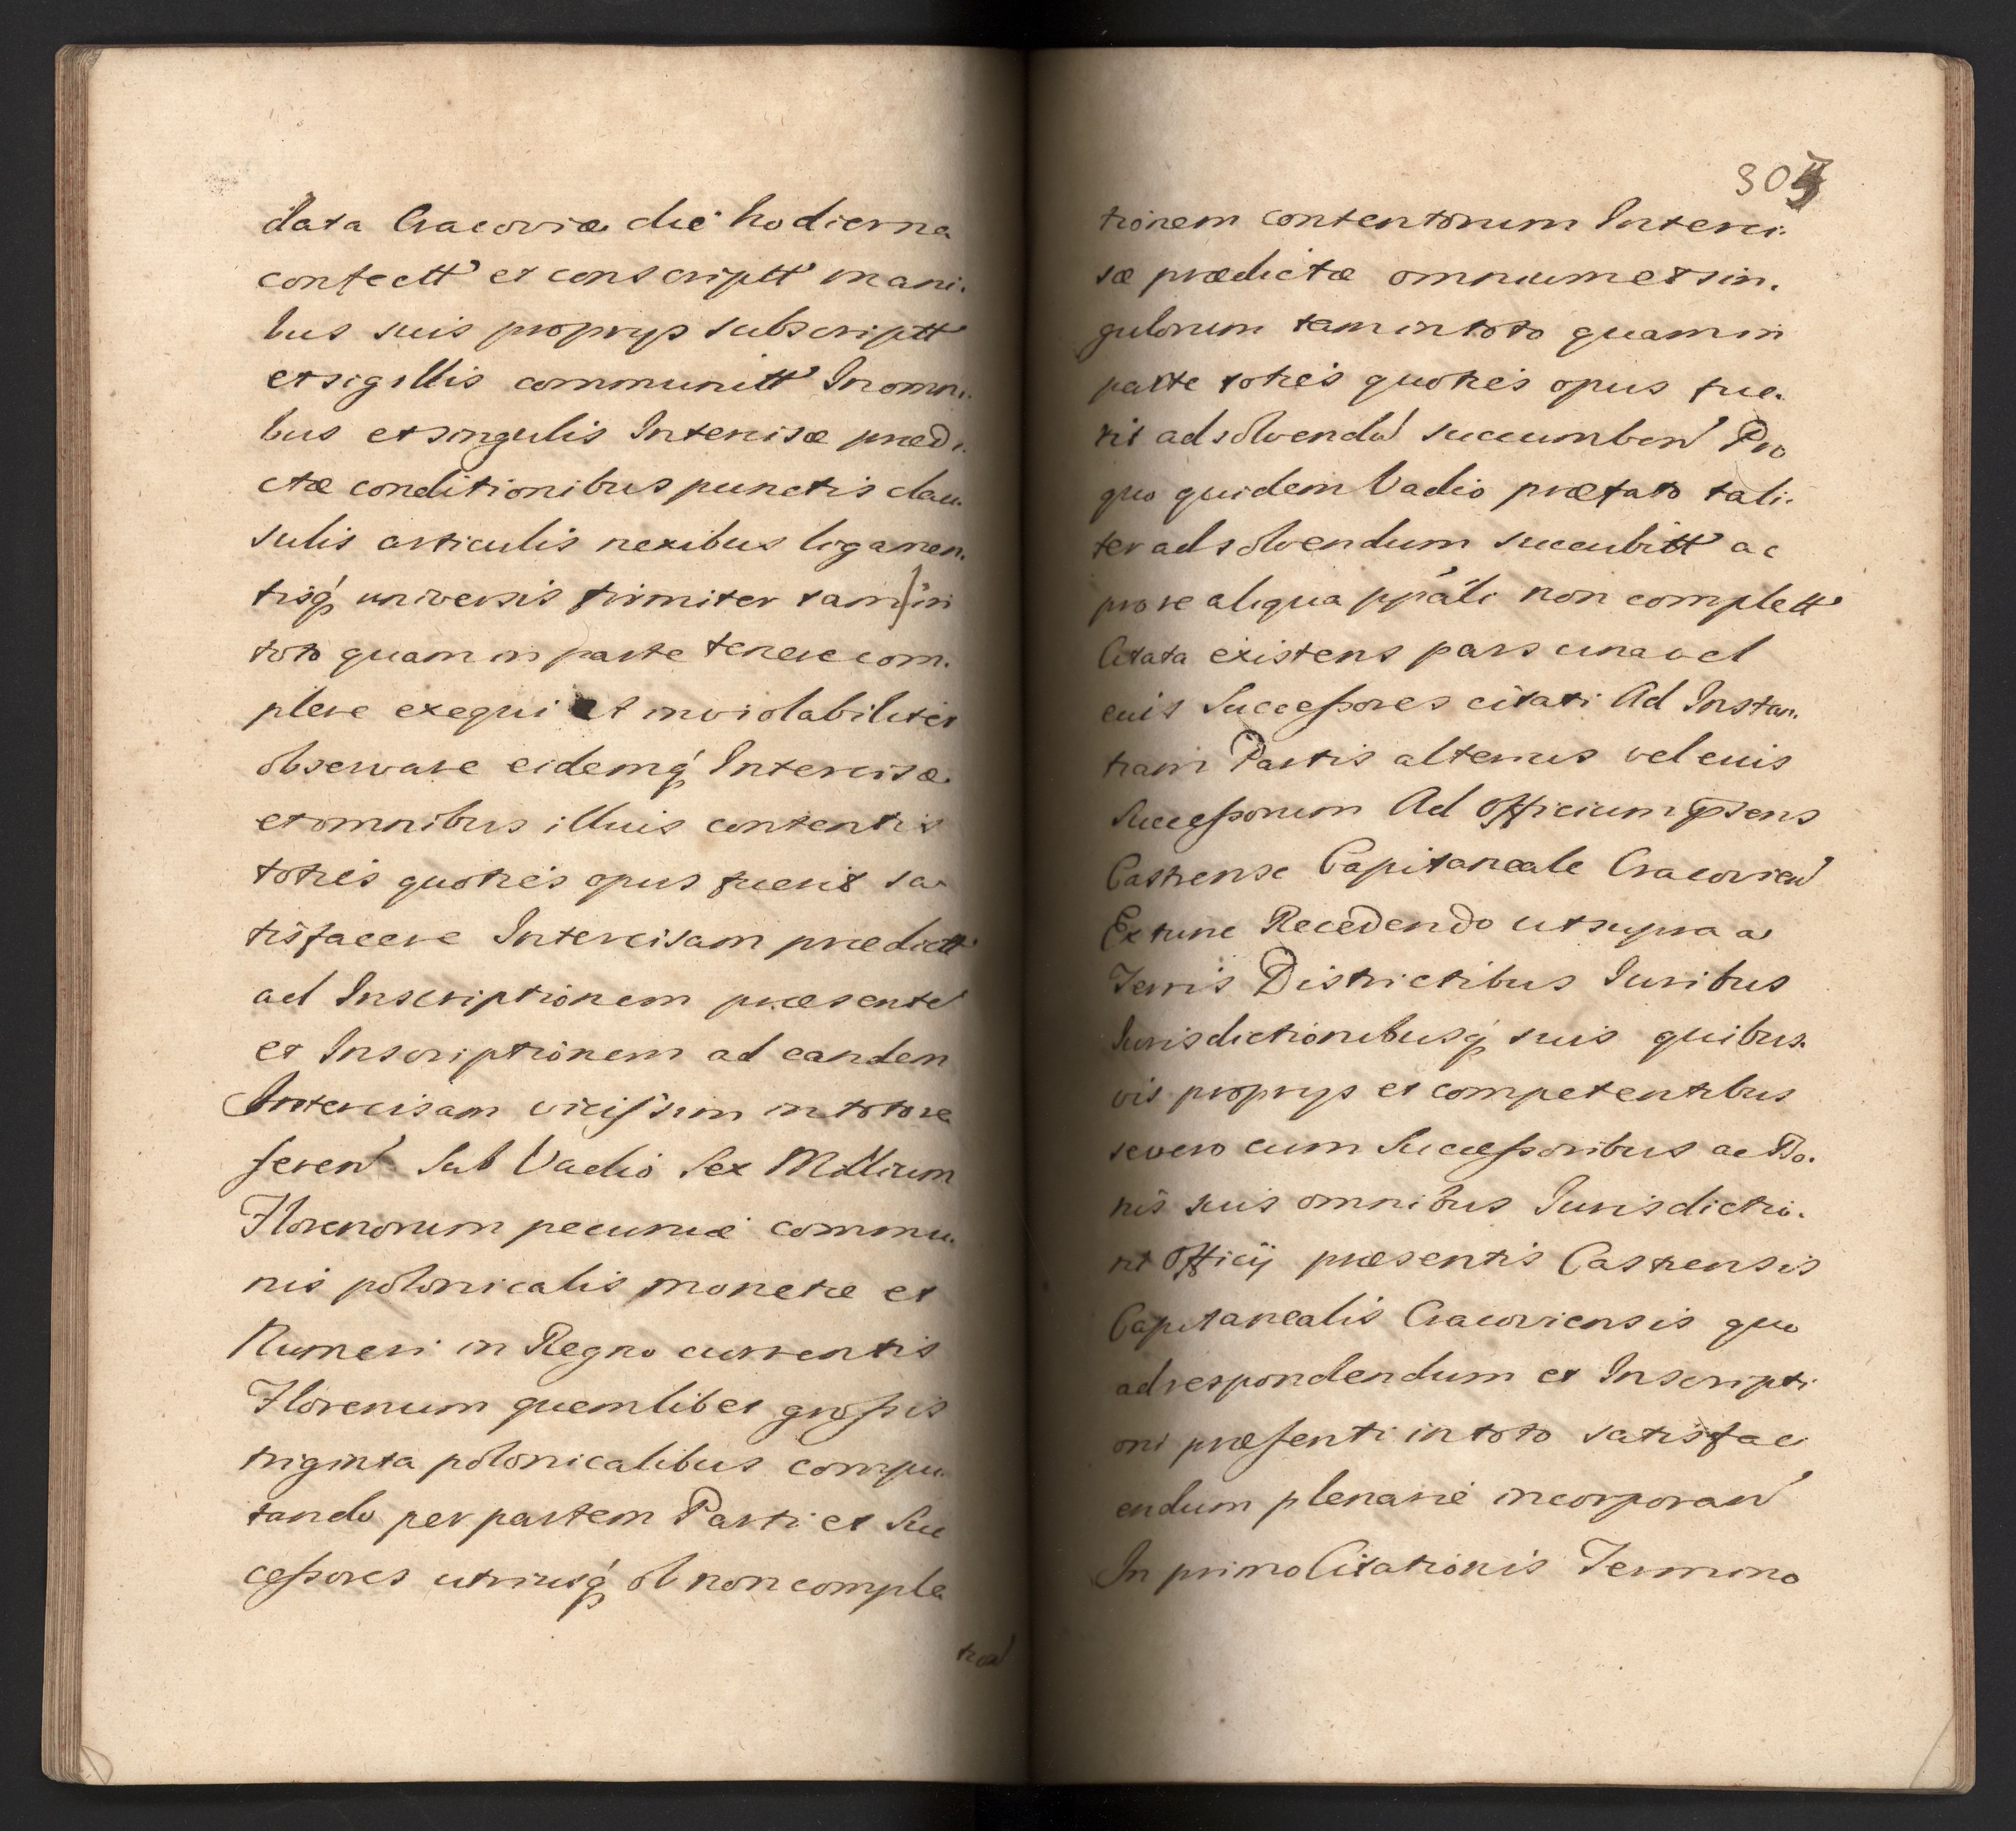 data Cracoviæ die hodierna
confectt et conscriptt mani.
bus suis proprys subscriptt
et sigillis communitt In omni.
bus et singulis Intercisæ prædi.
ctæ conditionibus punctis clau.
sulis articulis nexibus ligamen.
tisq́ universis firmiter tam in
toto quam in parte tenere com.
plere exequi et inviolabiliter
observare eidemq́ Intercisæ
et omnibus illius contentis
toties quoties opus fuerit sa
tisfacere Intercisam prædictt
ad Inscriptionem præsente
et Inscriptionem ad eandem
Intercisam vicissim in toto re
feren Sub Vadio Sex Millium
Florenorum pecuniæ commu.
nis polonicalis monetæ et
Numeri in Regno currentis
Florenum quemlibet grossis
triginta polonicalibus compu.
tando per partem Parti et Suc
cessores utriusq́ ob non comple
tion
305
tionem contentorum Interci.
sæ prædictæ omnium et sin.
gulorum tam in toto quam in
parte toties quoties opus fue.
rit adsolvendu succumben Pro
quo quidem Vadio præfato tali.
ter adsolvendum succubitt ac
pro re aliqua ppäli non complett
Citata existens pars una vel
euis Successores citati Ad Instan.
tiam Partis alterius vel euis
Successorum Ad Officium psens
Castrense Capitaneale Cracovien
Ex tunc Recedendo ut supra a
Terris Districtibus Iuribus
Iurisdictionibusq́ suis quibus.
vis proprys et competentibus
se vero cum Successoribus ac Bo.
nis suis omnibus Iurisdictio.
ni Officij præsentis Castrensis
Capitanealis Cracoviensis quo
ad respondendum et Inscripti
oni præsenti in toto satisfaci
endum plenarie incorporan
In primo Citationis Termino